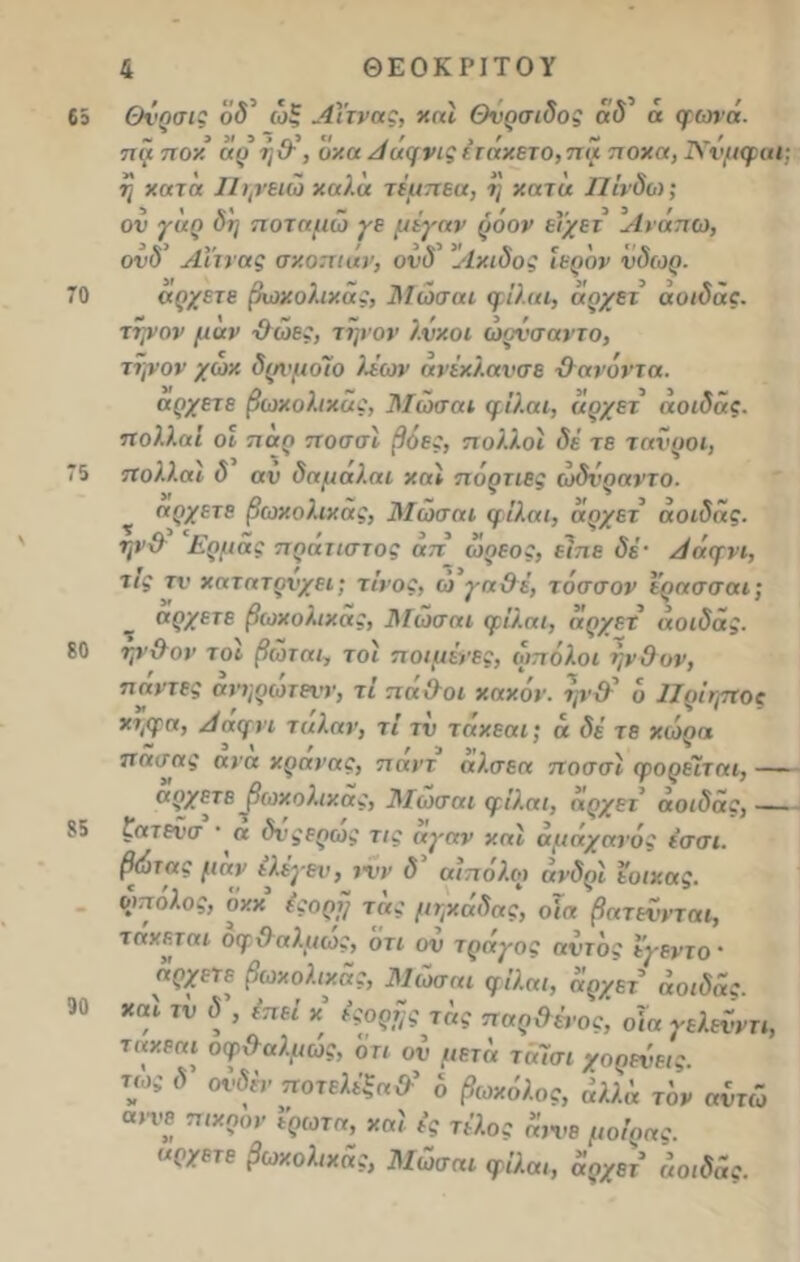 4 ΘΕΟΚΡΙΤΟΥ
65 Θύρσις ὅδ᾽ ὡξ Αἴτνας, καὶ Θύρσιδος ἅδ᾽ ἁ φωνά.
πᾷ ποκ᾽ ἄρ᾽ ἦθ᾽, ὅκα Δάφνις ἐτάκετο, πᾷ ποκα, Νύμφαι;
ἢ κατὰ Πηνειῶ καλὰ τέμπεα, ἢ κατὰ Πίνδω;
οὐ γὰρ δὴ ποταμῶ γε μέγαν ῥόον εἴχετ᾽ Ἀνάπω,
οὐδ᾽ Αἴτνας σκοπιάν, οὐδ᾽ Ἄκιδος ἱερὸν ὕδωρ.
70 ἄρχετε βωκολικᾶς, Μῶσαι φίλαι, ἄρχετ᾽ ἀοιδᾶς.
τῆνον μὰν θῶες, τῆνον λύκοι ὠρύσαντο,
τῆνον χὠκ δρυμοῖο λέων ἀνέκλαυσε θανόντα.
ἄρχετε βωκολικᾶς, Μῶσαι φίλαι, ἄρχετ᾽ ἀοιδᾶς.
πολλαί οἱ πὰρ ποσσὶ βόες, πολλοὶ δέ τε ταῦροι,
75 πολλαὶ δ᾽ αὖ δαμάλαι καὶ πόρτιες ὠδύραντο.
ἄρχετε βωκολικᾶς, Μῶσαι φίλαι, ἄρχετ᾽ ἀοιδᾶς.
ἦνθ᾽ Ἑρμᾶς πράτιστος ἀπ᾽ ὤρεος, εἶπε δέ· Δάφνι,
τίς τυ κατατρύχει; τίνος, ὦ ᾽γαθέ, τόσσον ἔρασσαι;
ἄρχετε βωκολικᾶς, Μῶσαι φίλαι, ἄρχετ᾽ ἀοιδᾶς.
80 ἦνθον τοὶ βῶται, τοὶ ποιμένες, ᾡπόλοι ἦνθον,
πάντες ἀνηρώτευν, τί πάθοι κακόν. ἦνθ᾽ ὁ Πρίηπος
κἤφα, Δάφνι τάλαν, τί τὺ τάκεαι; ἁ δέ τε κώρα
πάσας ἀνὰ κράνας, πάντ᾽ ἄλσεα ποσσὶ φορεῖται, —
ἄρχετε βωκολικᾶς, Μῶσαι φίλαι, ἄρχετ᾽ ἀοιδᾶς, —
85 ζατεῦσ᾽· ἆ δύςερώς τις ἄγαν καὶ ἀμάχανός ἐσσι.
βώτας μὰν ἐλέγευ, νῦν δ᾽ αἰπόλῳ ἀνδρὶ ἔοικας.
ᾡπόλος, ὅκκ᾽ ἐςορῇ τὰς μηκάδας, οἷα βατεῦνται,
τάκεται ὀφθαλμώς, ὅτι οὐ τράγος αὐτὸς ἔγεντο·
ἄρχετε βωκολικᾶς, Μῶσαι φίλαι, ἄρχετ᾽ ἀοιδᾶς.
90 καὶ τὺ δ᾽, ἐπεί κ᾽ ἐςορῇς τὰς παρθένος, οἷα γελεῦντι,
τάκεαι ὀφθαλμώς, ὅτι οὐ μετὰ ταῖσι χορεύεις.
τὼς δ᾽ οὐδὲν ποτελέξαθ᾽ ὁ βωκόλος, ἀλλὰ τὸν αὑτῶ
ἄνυε πικρὸν ἔρωτα, καὶ ἐς τέλος ἄνυε μοίρας.
ἄρχετε βωκολικᾶς, Μῶσαι φίλαι, ἄρχετ᾽ ἀοιδᾶς.